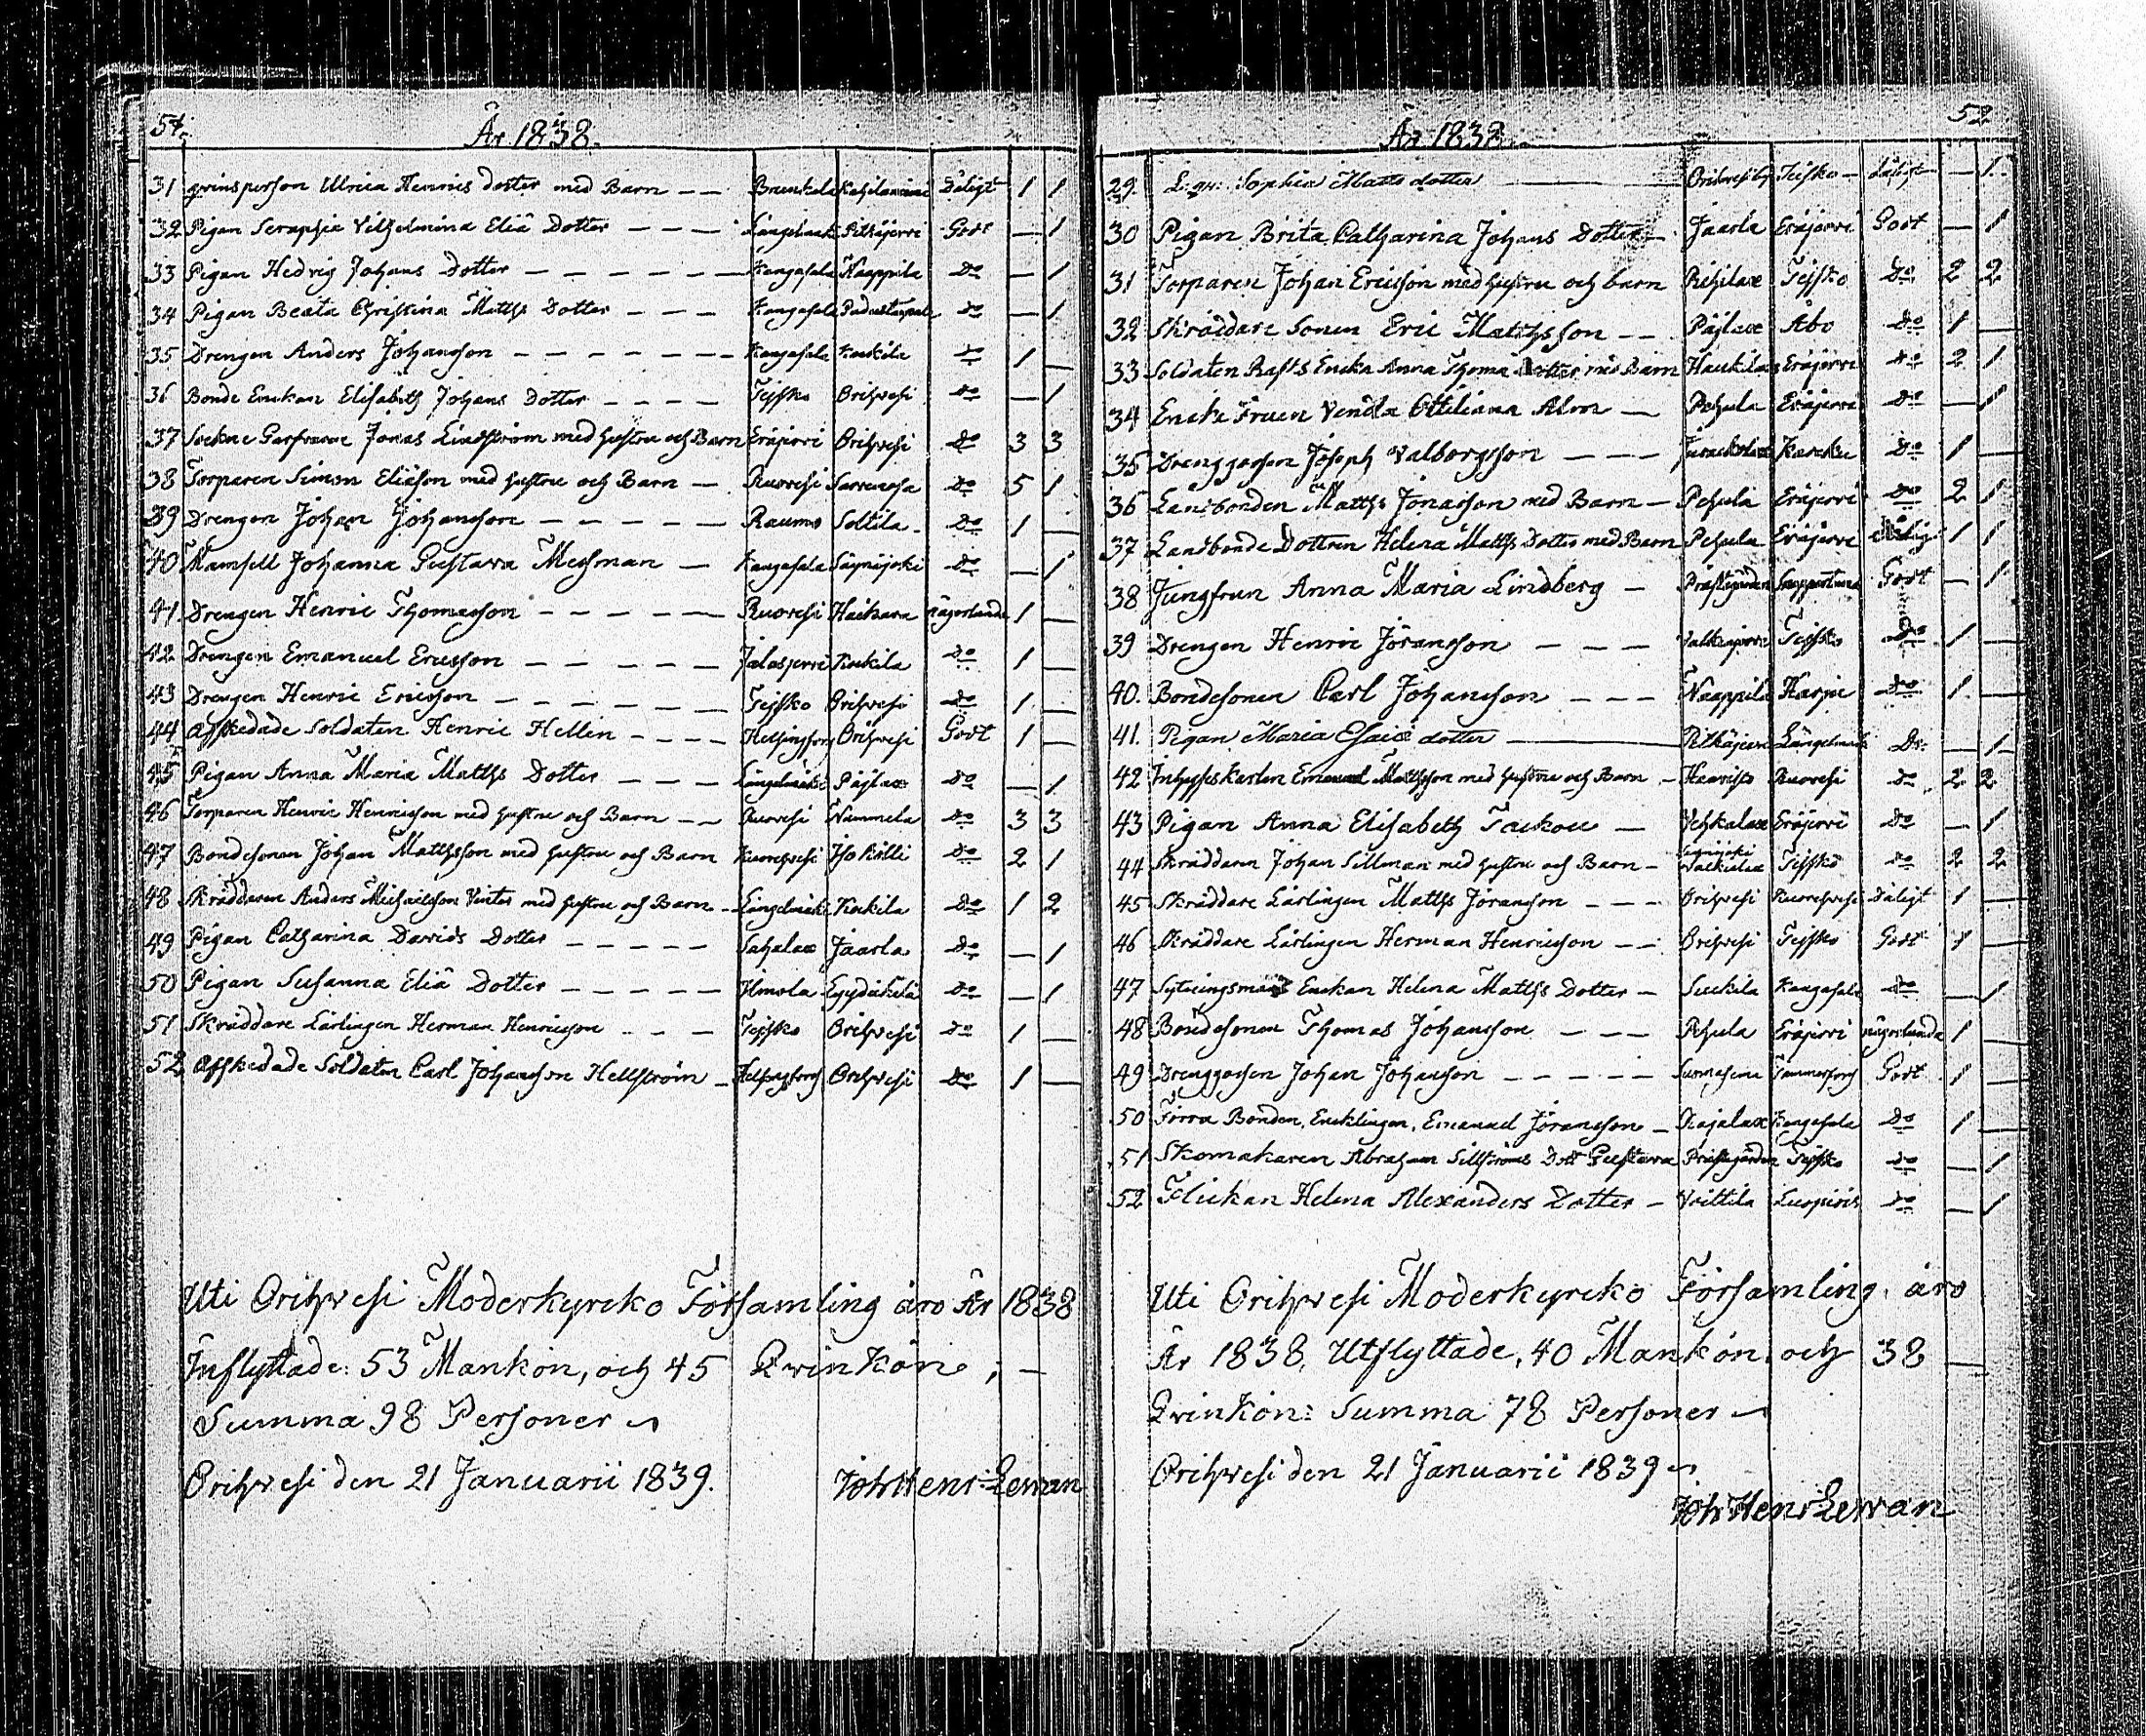 51.
År 1838.
31 qvinsperson Ulrica Henrics dotter med Barn — — Dåligt 1 1
32 Pigan Seraphia Vilhelmina Eliæ Dotter — — — Längelmäki Pitkäjervi Godt — 1
33 Pigan Hedvig Johans Dotter — — — — — Kangasala Naappila Do — 1
34 Pigan Beata Christina Matths Dotter — — — Kangasala Do — 1
35 Drengen Anders Johansson — — — — — — Kangasala Koukila Do 1 —
36 Bonde Enckan Elisabeth Johans Dotter — — — — Teisko Orihvesi Do — 1
37 Sockne Garfvaren Jonas Lindström med hustru och Barn Eräjervi Orihvesi Do 3 3
38 Torparen Simon Eliæson med hustru och Barn — Ruovesi Do 5 1
39 Drengen Johan Johansson — — — — — Raumo Soltila Do 1 —
40 Mamsell Johanna Gustava Messman — Kangasala Säynäjoki Do — 1
41 Drengen Henric Thomasson — — — — — Ruovesi Haikara någorlunda 1 —
42 Drengen Emanuel Ericsson — — — — — Jalasjervi Koukila Do 1 —
43 Drengen Henric Ericsson — — — — — — Teisko Orihvesi Do 1 —
44 Afskedade Soldaten Henric Hellin — — — — Helsingfors Orihvesi Godt 1 —
45 Pigan Anna Maria Matths Dotter — — — Längelmäki Päjlax Do — 1
46 Torparen Henric Henricsson med hustru och Barn — — Ruovesi Nammela Do 3 3
47 Bondesonen Johan Matthsson med hustru och Barn Kuorehvesi Iso Killi Do 2 1
48 Skräddaren Anders Michaelsson Vinter med hustru och Barn — Längelmäki Koukila Do 1 2
49 Pigan Catharina Davids Dotter — — — — — Sahalax Jaarla Do — 1
50 Pigan Susanna Eliæ Dotter — — — — — Ilmola Do — 1
51 Skräddare Lärlingen Herman Henricsson — — — Teisko Orihvesi Do 1 —
52 Afskedade Soldaten Carl Johansson Hellström — Helsingfors Orihvesi Do 1 —
Uti Orihvesi Moderkyrcko Församling äro År 1838
Inflyttade: 53 Mankön, och 45 Qvinkön, —
Summa 98 Personer
Orihvesi den 21 Januarii 1839. Joh Henr: Lewan
52
År 1838.
29. Sophia Matts dotter — Orihvesi Teisko — Dåligt — 1
30 Pigan Brita Catharina Johans Dotter — Jaarla Eräjervi Godt — 1
31 Torparen Johan Ericsson med hustru och barn Pihilax Teisko Do 2 2
32 Skräddare Sonen Eric Matthsson — — Päjlax Åbo Do 1 —
33 Soldaten Rasks Encka Anna Thomæ Dotter med Barn Haukila Eräjervi Do 2 1
34 Encke Fruen Vendla Ottiliana Alm — Pehula Eräjervi Do — 1
35 Drenggossen Joseph Valborgsson — — — Karcku Do 1 —
36 Landbonden Matths Jonasson med Barn — Pehula Eräjervi Do 2 1
37 Landbonde Dottren Helena Matths Dotter med Barn Pehula Eräjervi Dåligt 1 1
38 Jungfrun Anna Maria Lindberg — Prästgården Godt — 1
39 Drengen Henric Jöransson — — — Valkiajervi Teisko Do 1 —
40. Bondesonen Carl Johansson — — — Naappila Harju Do 1 —
41. Pigan Maria Esaiæ dotter — Pitkäjervi Längelmäki Do — 1
42 Inhyseskarlen Emanuel Matthsson med hustru och Barn — Haavisto Ruovesi Do 2 2
43 Pigan Anna Elisabeth Tackou — Vehkalax Eräjervi Do — 1
44 Skräddaren Johan Sillman med hustru och Barn — Säynäjoki Teisko Do 2 2
45 Skräddare Lärlingen Matths Jöransson — — — Orihvesi Kuorehvesi Dåligt 1 —
46 Skräddare Lärlingen Herman Henricsson — — Orihvesi Teisko Godt 1 —
47 Sytningsmans Enckan Helena Matths Dotter — Suckila Kangasala Do — 1
48 Bondesonen Thomas Johansson — — — Pehula Eräjervi någorlunda 1 —
49 Drenggossen Johan Johansson — — — — — Tammerfors Godt 1 —
50 Förra Bonden, Encklingen, Emanuel Jöransson — Rajalax Kangasala Do 1 —
51 Skomakaren Abraham Sillströms Dott Gustava Prästgården Teisko Do — 1
52 Flickan Helena Alexanders Dotter — Voittila Luopiois Do — 1
Uti Orihvesi Moderkyrcko Församling, äro
År 1838, Utflyttade, 40 Mankön, och 38 —
Qvinkön: Summa 78 Personer
Orihvesi den 21 Januarii 1839
Joh Henr Lewan